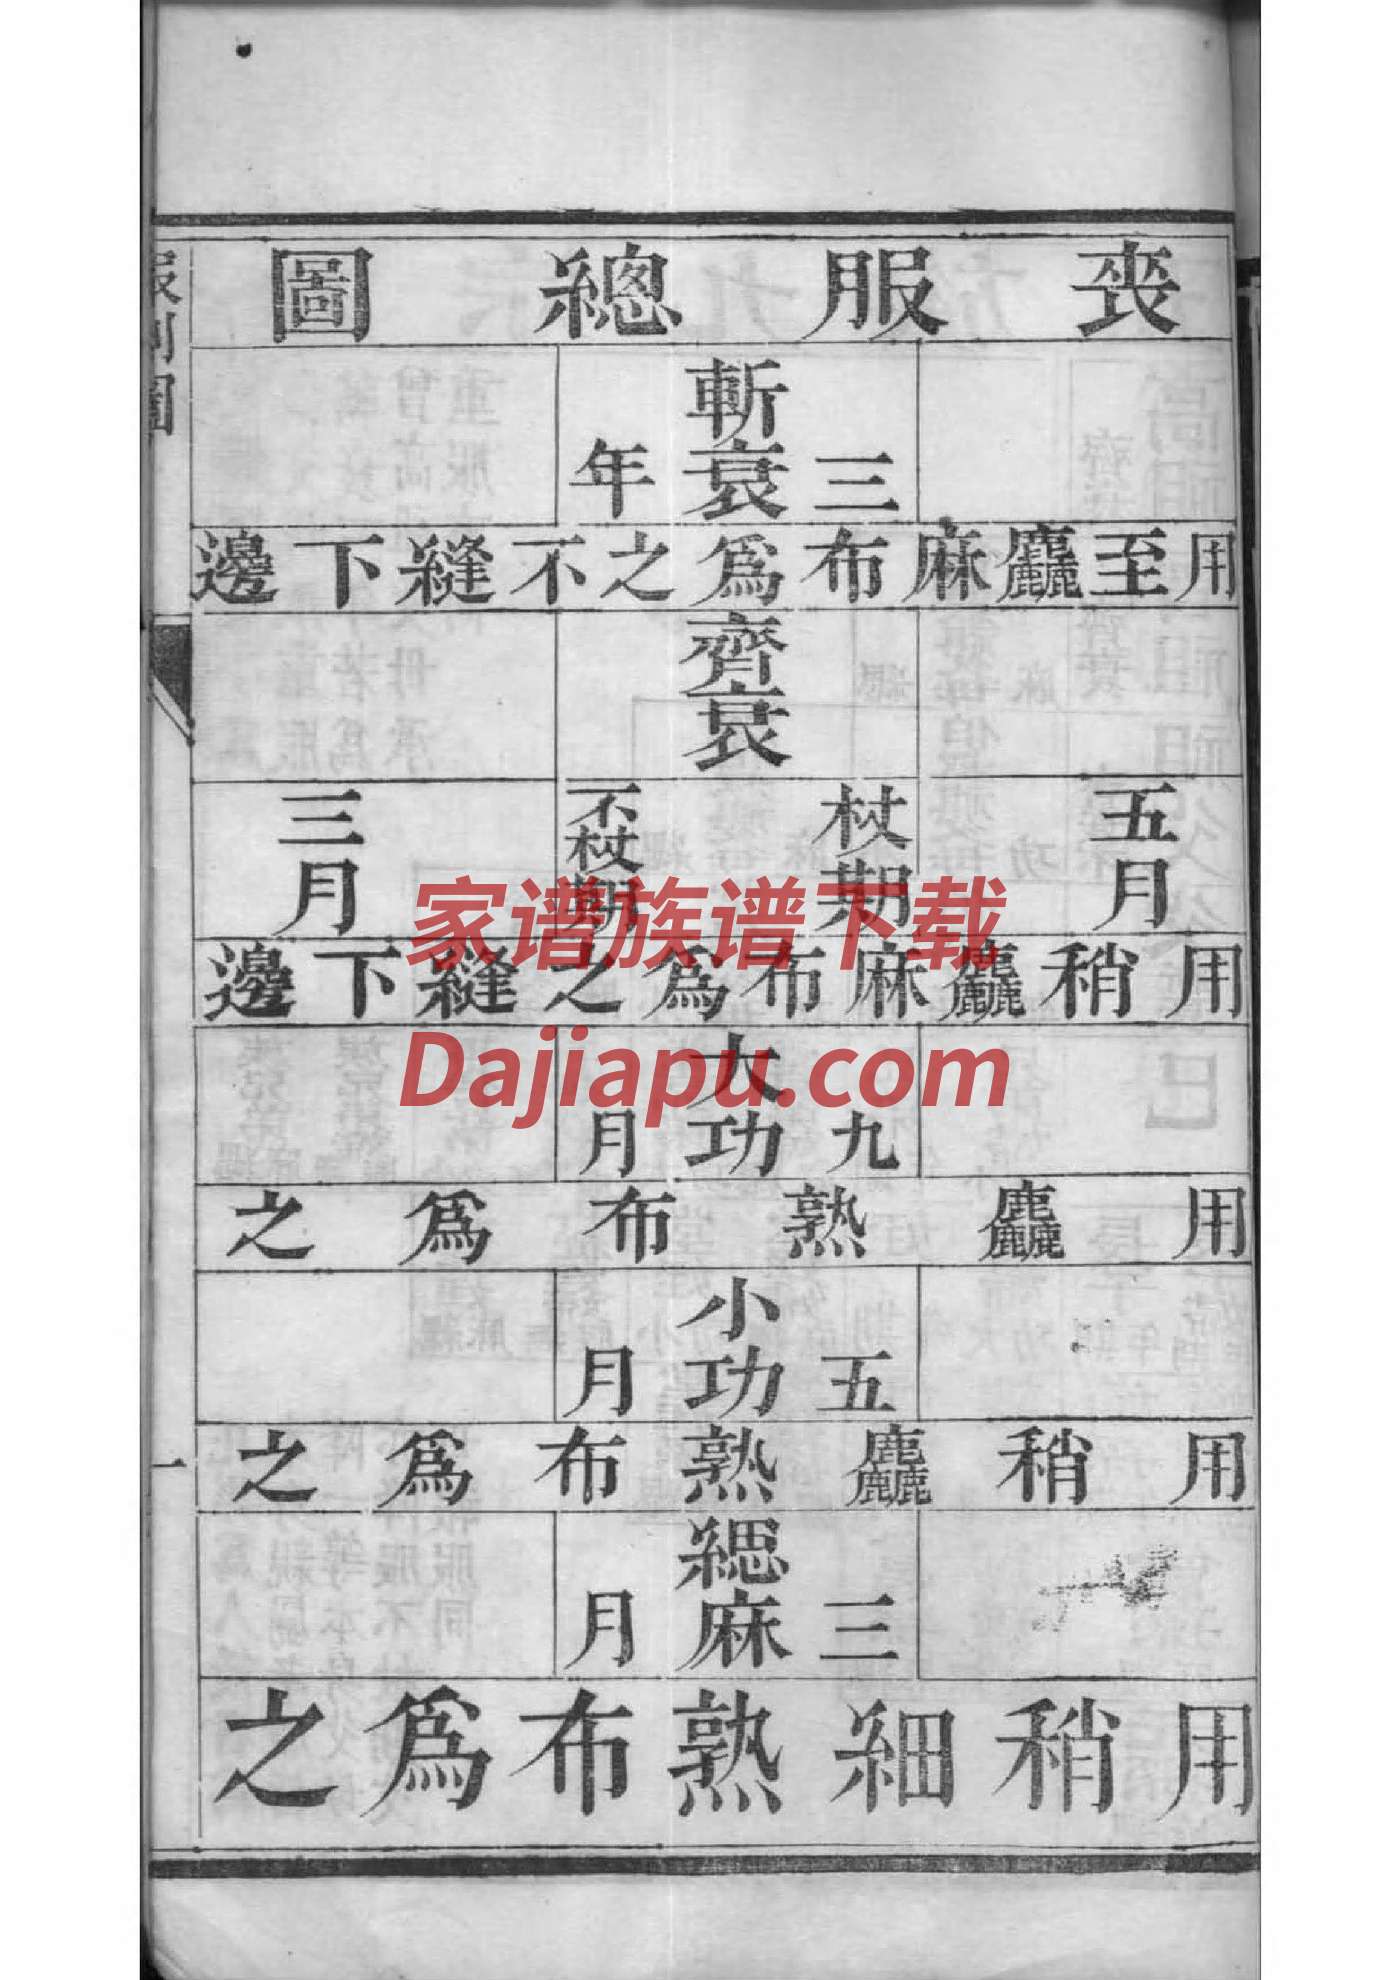 喪服總圖
斬衰
三年
用至麤麻布為之不縫下邊
齊衰
五月
杖期
不杖期
三月
用稍麤麻布為之縫下邊
大功
九月
用麤熟布為之
小功
五月
用稍麤熟布為之
緦麻
三月
用稍細熟布為之
一
家谱族谱下载
Dajiapu.com